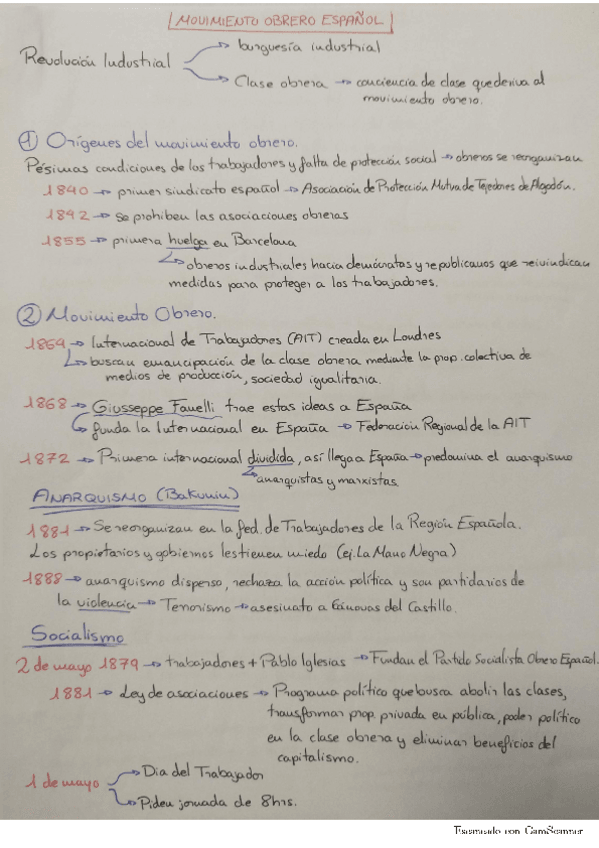 MOVIMIENTO OBRERO ESPAÑOL
Revolución Industrial
burguesía industrial
Clase obrera → conciencia de clase que deriva al
movimiento obrero.
① Orígenes del movimiento obrero.
Pésimas condiciones de los trabajadores y falta de protección social → obreros se reorganizan
1840 → primer sindicato español → Asociación de Protección Mutua de Tejedores de Algodón.
1842 → se prohiben las asociaciones obreras
1855 → primera huelga en Barcelona
obreros industriales hacia demócratas y republicanos que reivindican
medidas para proteger a los trabajadores.
② Movimiento Obrero.
1864 → Internacional de Trabajadores (AIT) creada en Londres
buscan emancipación de la clase obrera mediante la prop. colectiva de
medios de producción, sociedad igualitaria.
1868 → Giusseppe Fanelli trae estas ideas a España
funda la Internacional en España → Federación Regional de la AIT
1872 → Primera internacional dividida, así llega a España → predomina el anarquismo
anarquistas y marxistas
ANARQUISMO (Bakunin)
1881 → Se reorganizan en la fed. de Trabajadores de la Región Española.
Los propietarios y gobiernos les tienen miedo (ej. La Mano Negra)
1888 → anarquismo disperso, rechaza la acción política y son partidarios de
la violencia → Terrorismo → asesinato a Cánovas del Castillo.
Socialismo
2 de mayo 1879 → trabajadores + Pablo Iglesias → Fundan el Partido Socialista Obrero Español.
1881 → Ley de asociaciones → Programa político que busca abolir las clases,
transformar prop. privada en pública, poder político
en la clase obrera y eliminar beneficios del
capitalismo.
1 de mayo
Dia del Trabajador
Piden jornada de 8hrs.
Escaneado con CamScanner